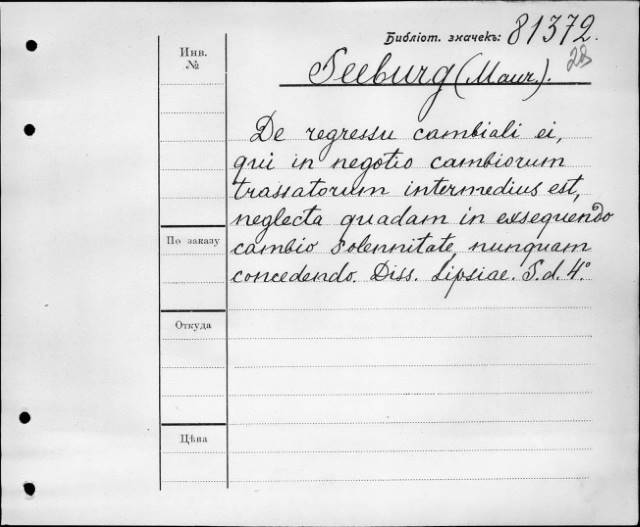 Библіот. значекъ: 81372.
28
Инв.
№
Seeburg (Maur).
De regressu cambiali ei,
qui in negotio cambiorum
trassatorum intermedius est,
neglecta quadam in exsequendo
cambio solennitate, nunquam
concedendo. Diss. Lipsiae. S.d. 4°
По заказу
Откуда
Цѣна